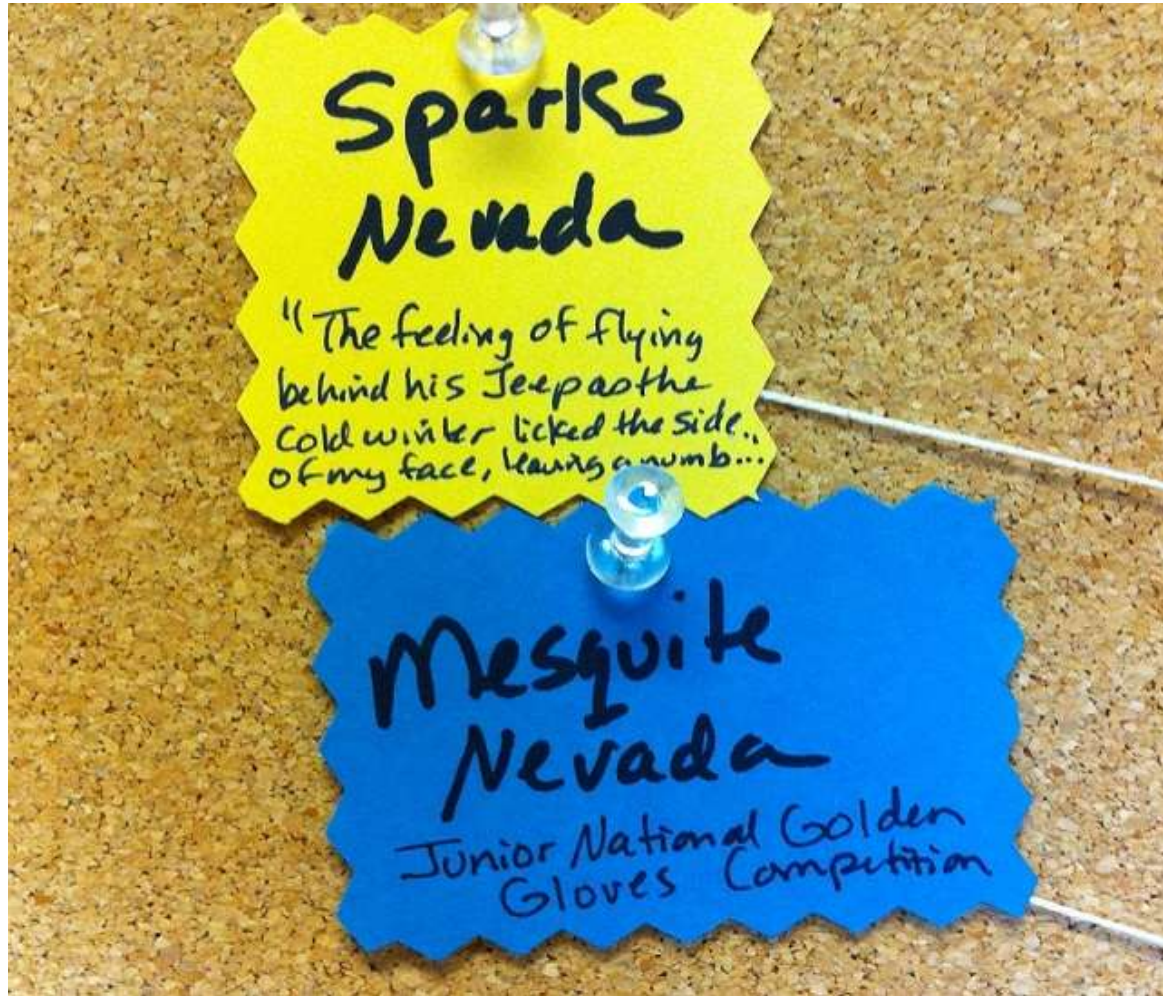 Sparks
Nevada
"The feeling of flying
behind his Jeep as the
cold winter licked the side..
of my face, leaving a numb...
Mesquite
Nevada
Junior National Golden
Gloves Competition